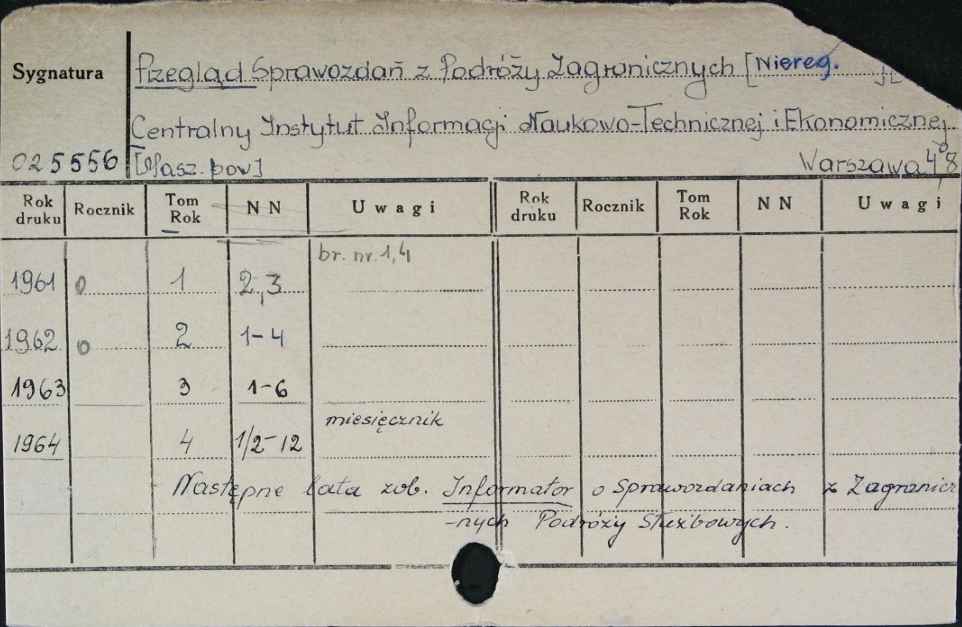 Sygnatura
Przegląd Sprawozdań z Podróży Zagranicznych [Niereg.
Centralny Instytut Informacji Naukowo-Technicznej i Ekonomicznej.
025556 [Masz. pow] Warszawa 4°8
Rok druku Rocznik Tom Rok N N U w a g i Rok druku Rocznik Tom Rok N N U w a g i
br. nr. 1,4
1961 o 1 2,3
1962 o 2 1-4
1963 3 1-6
miesięcznik
1964 4 1/2-12
Następne lata zob. Informator o Sprawozdaniach z Zagranicz
-nych Podróży Służbowych.